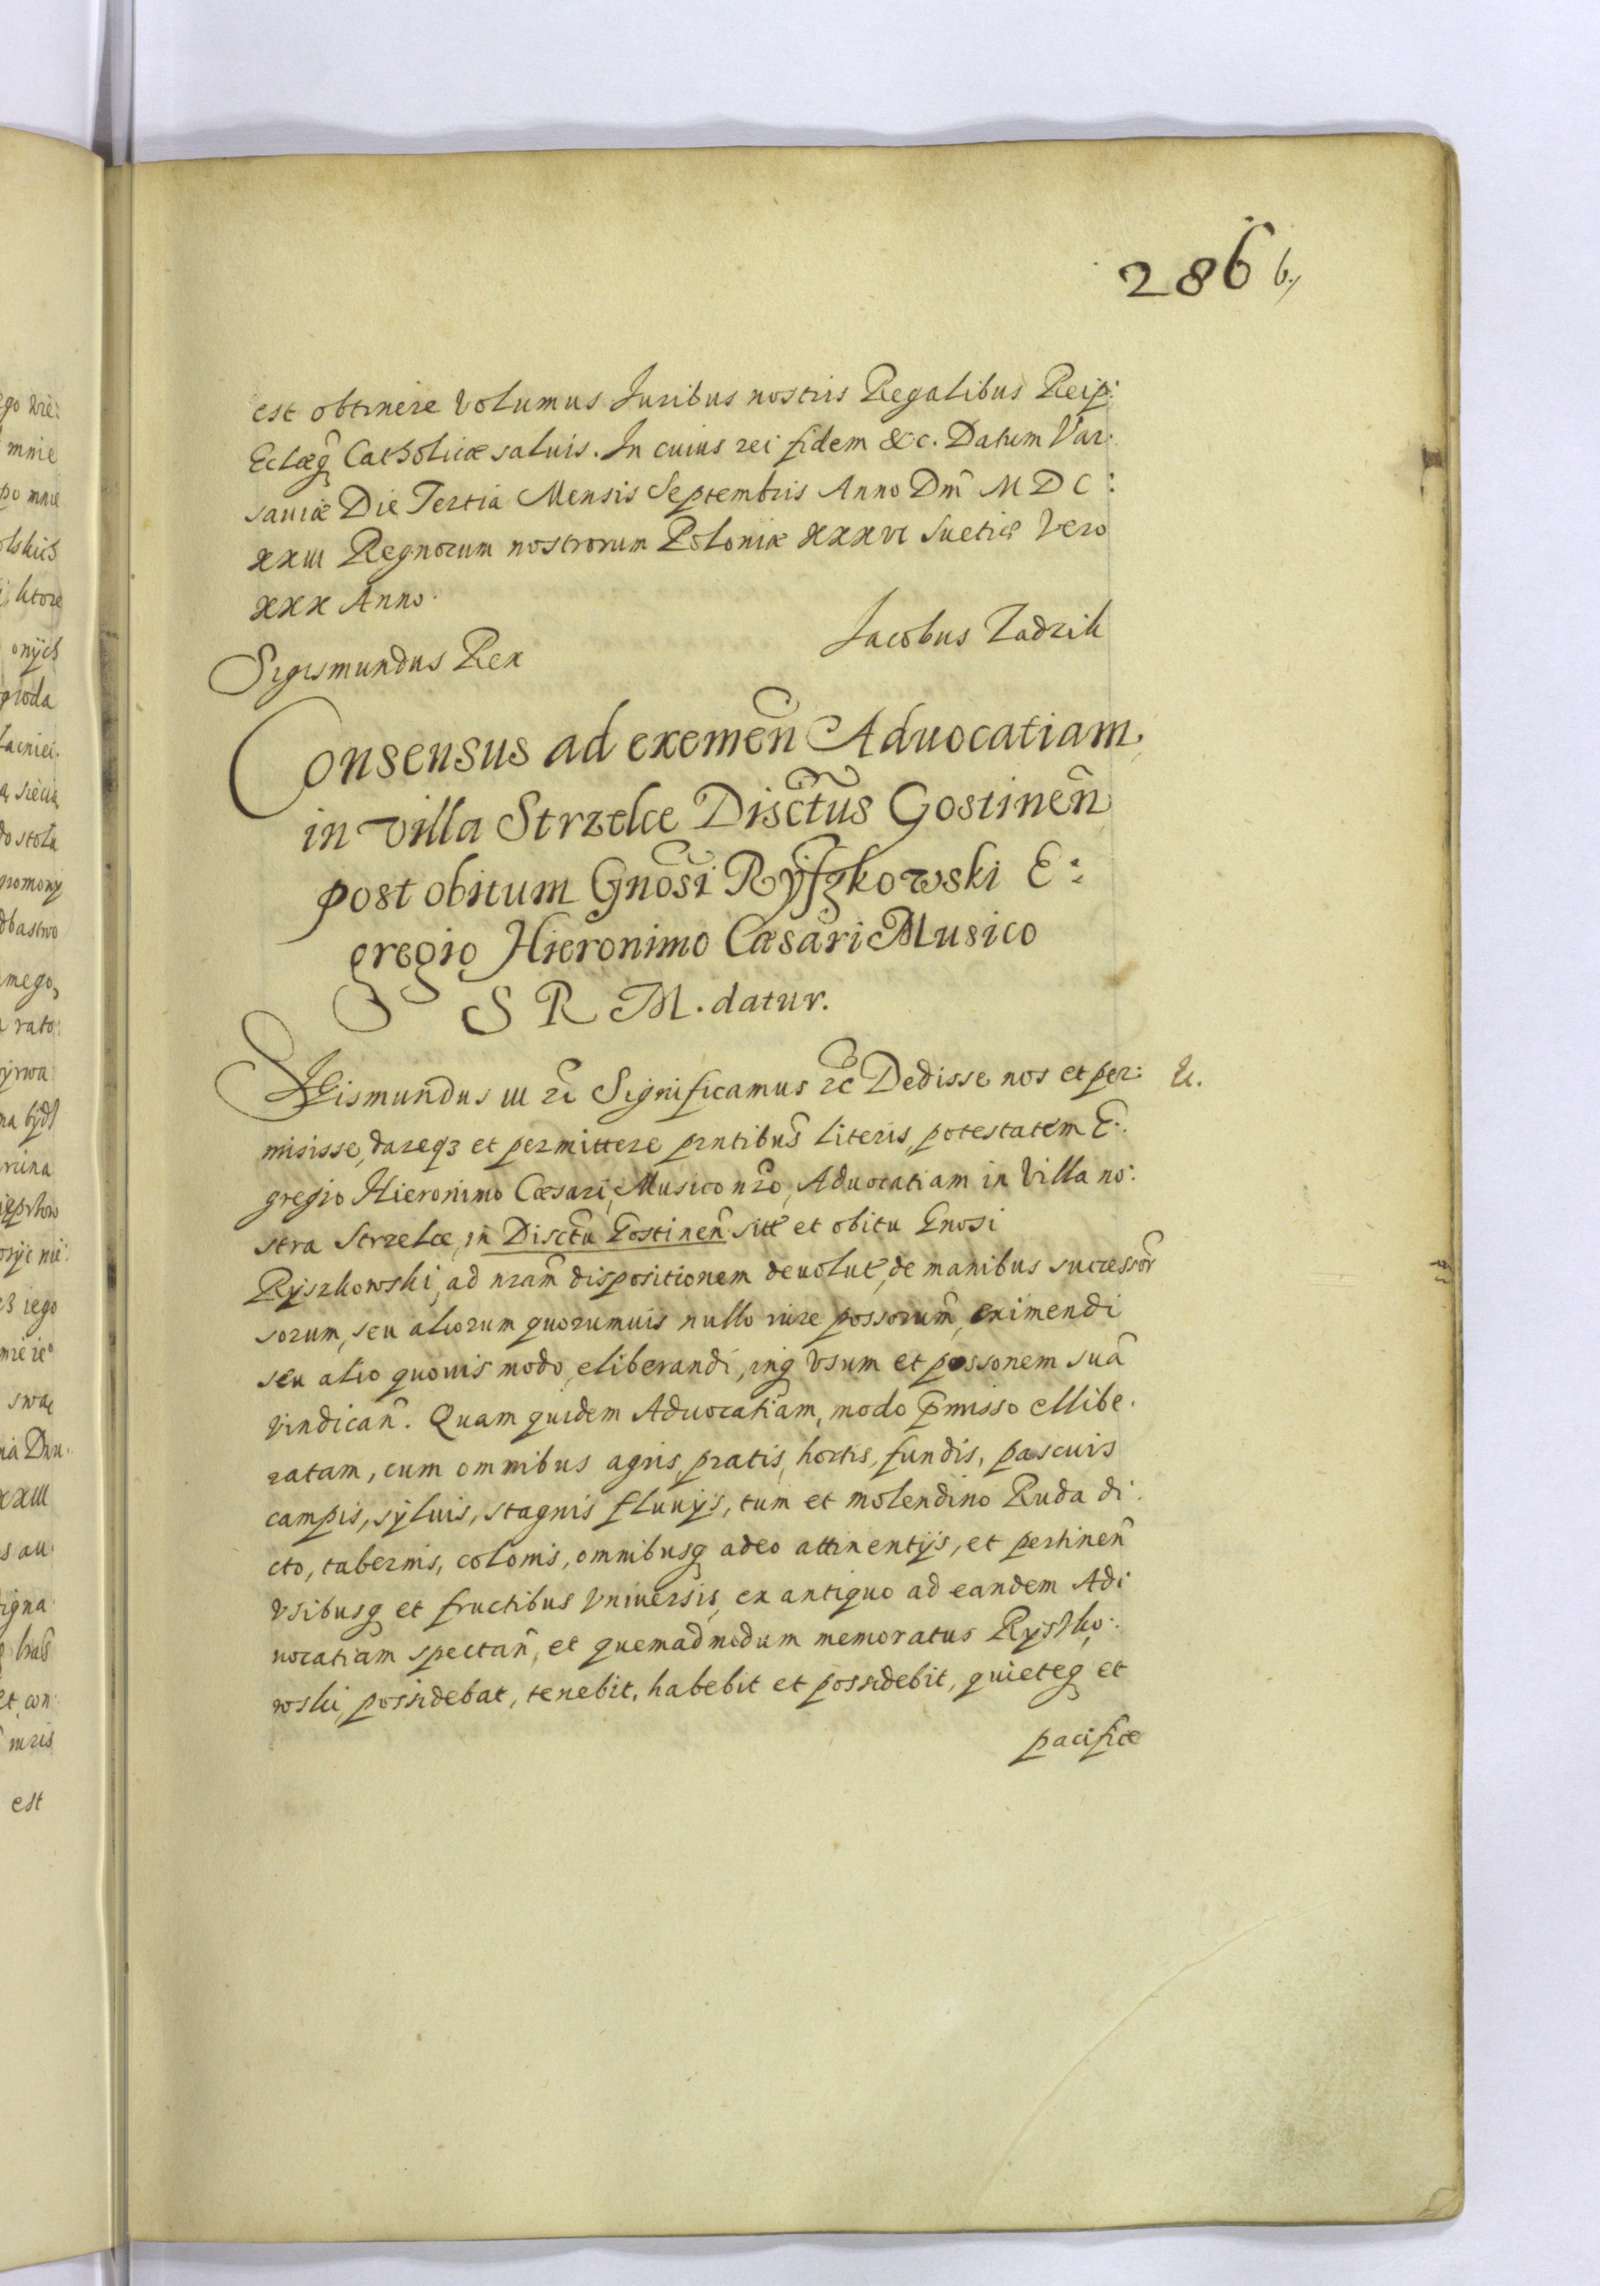 286 b.
est obtinere Volumus Juribus nostris Regalibus Reip:
Eclæq̃ Catholicæ saluis. In cuius rei fidem &c. Datum Var:
sauiæ Die Tertia Mensis Septembris Anno Dñi M D C:
xxiii Regnorum nostrorum Poloniæ xxxvi Suetiæ Vero
xxx Anno.
Jacobus Zadzik
Sigismundus Rex
Consensus ad exemen̄ Aduocatiam
in villa Strzelce Disctūs Gostinen̄
post obitum Gnōsi Ryſzkowski E:
gregio Hieronimo Cæsari Musico
S R M. datur.
Sigismundus III &c Significamus &c Dedisse nos et per:
misisse, dareqз et permittere pñtibus literis, potestatem E:
gregio Hieronimo Cæsari, Musico nr̃o, Aduocatiam in Villa no:
stra Strzelce, in Disctũ Gostinen̄ sitt̃ et obitu Gnosi
Ryszkowski, ad nr̃am dispositionem deuolut̃, de manibus successor̃
sorum, seu aliorum quorumuis nullo iure possorum̃, eximendi
seu alio quouis modo, eliberandi, inq̃ Vsum et possonem suã
vindican̄. Quam quidem Aduocatiam, modo p̃misso ellibe.
ratam, cum omnibus agris, pratis, hortis, fundis, pascuis
campis, syluis, stagnis fluuijs, tum et molendino Ruda di.
cto, tabernis, colonis, omnibusq̃ adeo attinentijs, et pertinen̄
Vsibusq̃ et fructibus Vniuersis, ex antiquo ad eandem Adi
uocatiam spectan̄, et quemadmodum memoratus Ryszko:
wski, possidebat, tenebit, habebit et possidebit, quieteq̃ et
pacifice